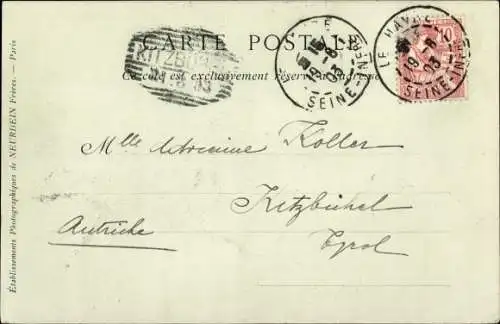 CARTE POSTALE
Ce côté est exclusivement réservé à l'adresse
KITZBÜ
LE HAVRE
19 -8
03
SEINE-INFRE
LE HAVRE
19 -8
03
SEINE-INFRE
10
Mlle Adrienne Koller
Kitzbühel
Autriche
Tyrol
Établissements Photographiques de NEURDEIN Frères. — Paris